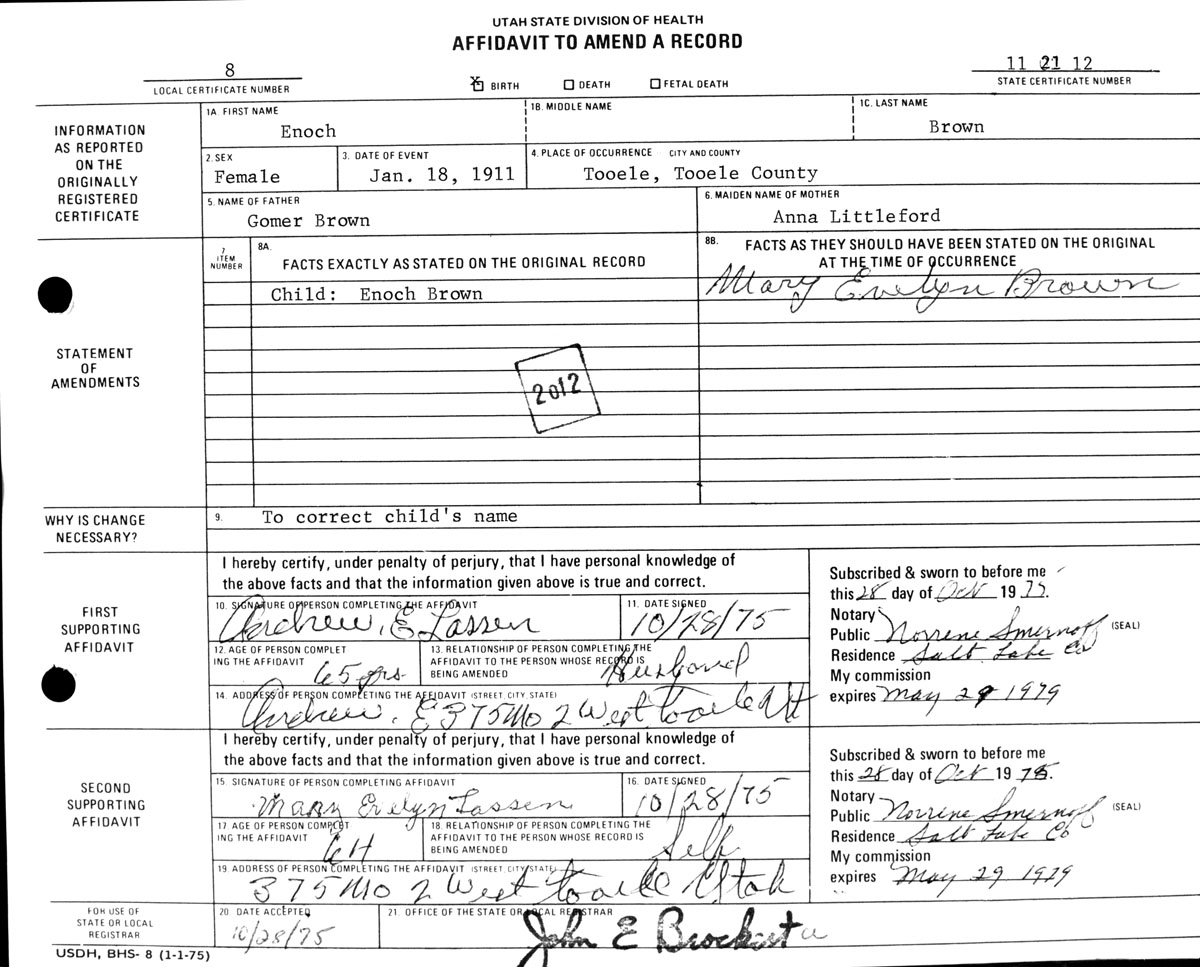 UTAH STATE DIVISION OF HEALTH
AFFIDAVIT TO AMEND A RECORD
8
LOCAL CERTIFICATE NUMBER
X BIRTH DEATH FETAL DEATH
11 21 12
STATE CERTIFICATE NUMBER
INFORMATION
AS REPORTED
ON THE
ORIGINALLY
REGISTERED
CERTIFICATE
1A. FIRST NAME
Enoch
1B. MIDDLE NAME
1C. LAST NAME
Brown
2. SEX
Female
3. DATE OF EVENT
Jan. 18, 1911
4. PLACE OF OCCURRENCE CITY AND COUNTY
Tooele, Tooele County
5. NAME OF FATHER
Gomer Brown
6. MAIDEN NAME OF MOTHER
Anna Littleford
STATEMENT
OF
AMENDMENTS
7
ITEM
NUMBER
8A.
FACTS EXACTLY AS STATED ON THE ORIGINAL RECORD
8B. FACTS AS THEY SHOULD HAVE BEEN STATED ON THE ORIGINAL
AT THE TIME OF OCCURRENCE
Child: Enoch Brown
Mary Evelyn Brown
2012
WHY IS CHANGE
NECESSARY?
9. To correct child's name
FIRST
SUPPORTING
AFFIDAVIT
I hereby certify, under penalty of perjury, that I have personal knowledge of
the above facts and that the information given above is true and correct.
10. SIGNATURE OF PERSON COMPLETING THE AFFIDAVIT
Andrew, E Lassen
11. DATE SIGNED
10/28/75
12. AGE OF PERSON COMPLET
ING THE AFFIDAVIT
65 yrs
13. RELATIONSHIP OF PERSON COMPLETING THE
AFFIDAVIT TO THE PERSON WHOSE RECORD IS
BEING AMENDED
Husband
14. ADDRESS OF PERSON COMPLETING THE AFFIDAVIT (STREET, CITY, STATE)
Andrew, E 375 No 2 West Tooele Ut
Subscribed & sworn to before me
this 28 day of Oct 1975.
Notary
Public Norrene Smernoff (SEAL)
Residence Salt Lake Co
My commission
expires May 29 1979
SECOND
SUPPORTING
AFFIDAVIT
I hereby certify, under penalty of perjury, that I have personal knowledge of
the above facts and that the information given above is true and correct.
15. SIGNATURE OF PERSON COMPLETING AFFIDAVIT
Mary Evelyn Lassen
16. DATE SIGNED
10/28/75
17. AGE OF PERSON COMPLET
ING THE AFFIDAVIT
64
18. RELATIONSHIP OF PERSON COMPLETING THE
AFFIDAVIT TO THE PERSON WHOSE RECORD IS
BEING AMENDED
Self
19 ADDRESS OF PERSON COMPLETING THE AFFIDAVIT (STREET, CITY, STATE)
375 No 2 West Tooele Utah
Subscribed & sworn to before me
this 28 day of Oct 1975.
Notary
Public Norrene Smernoff (SEAL)
Residence Salt Lake Co
My commission
expires May 29 1979
FOR USE OF
STATE OR LOCAL
REGISTRAR
20 DATE ACCEPTED
10/28/75
21. OFFICE OF THE STATE OR LOCAL REGISTRAR
John E
USDH, BHS- 8 (1-1-75)